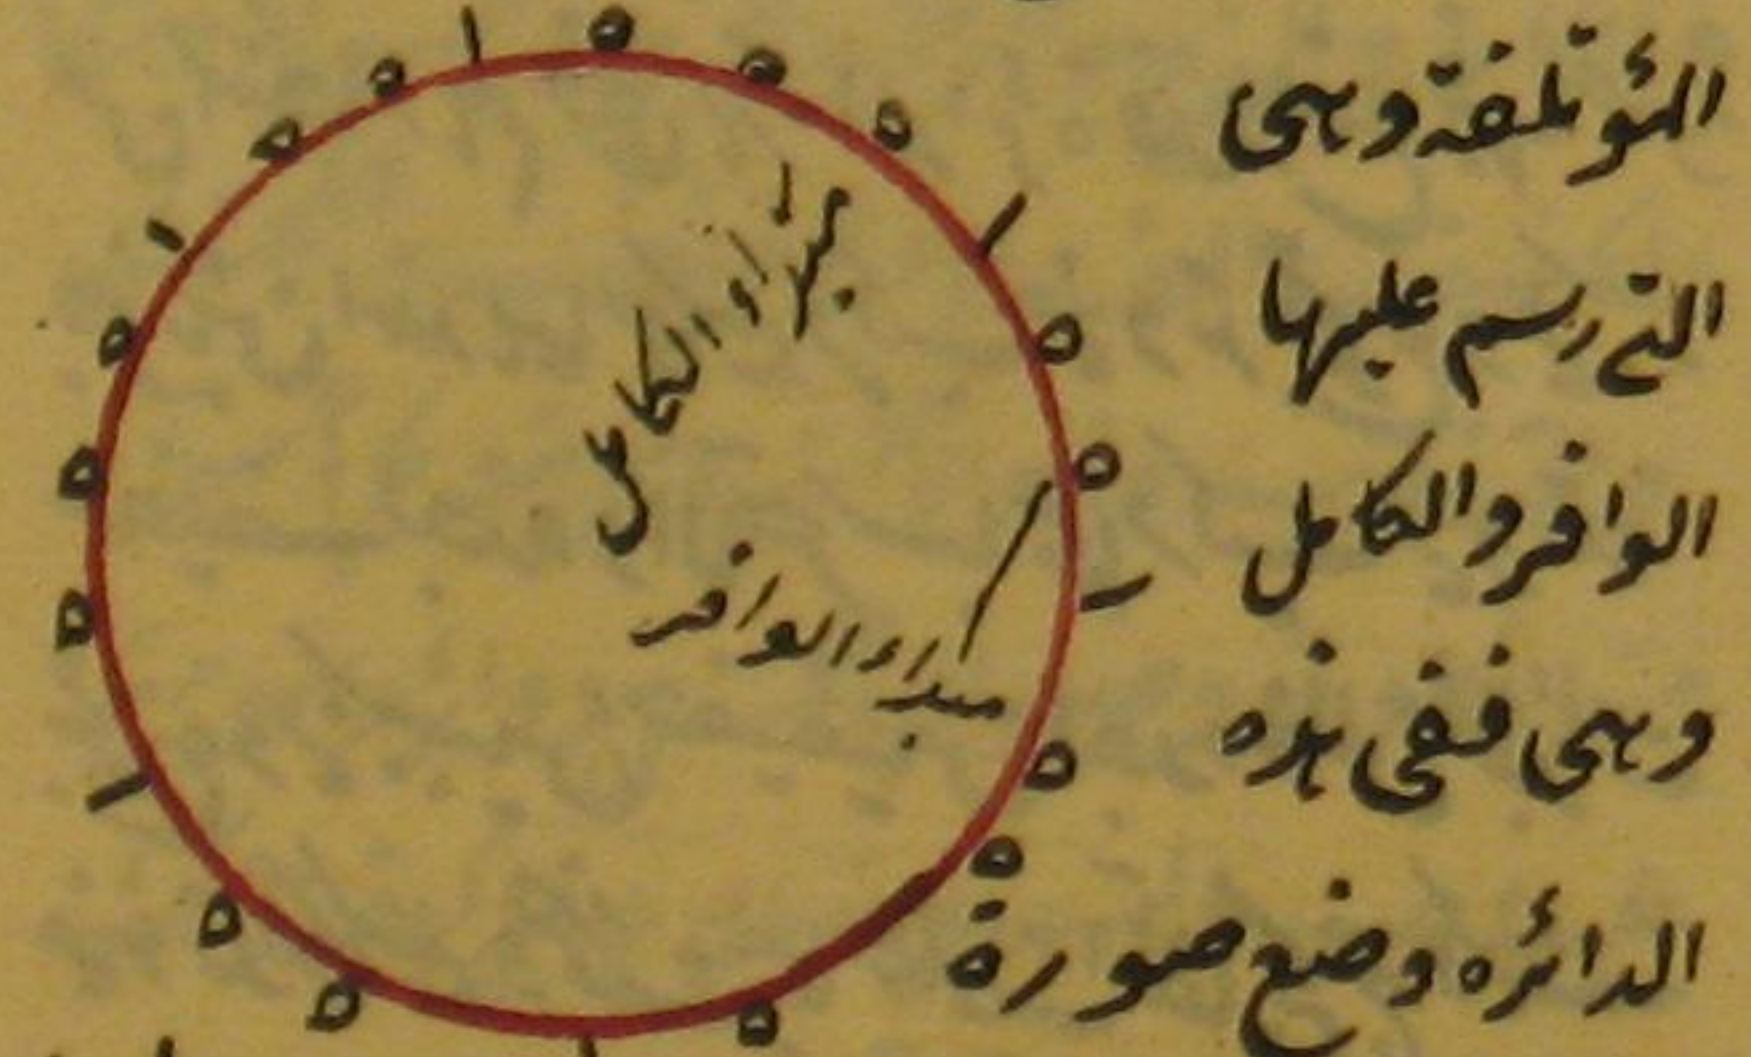 المؤتلفة وهى
التى رسم عليها
الوافر والكامل
وهى ففى هذه
الدائره وضع صورة
مبداء الكامل
مبداء الوافر